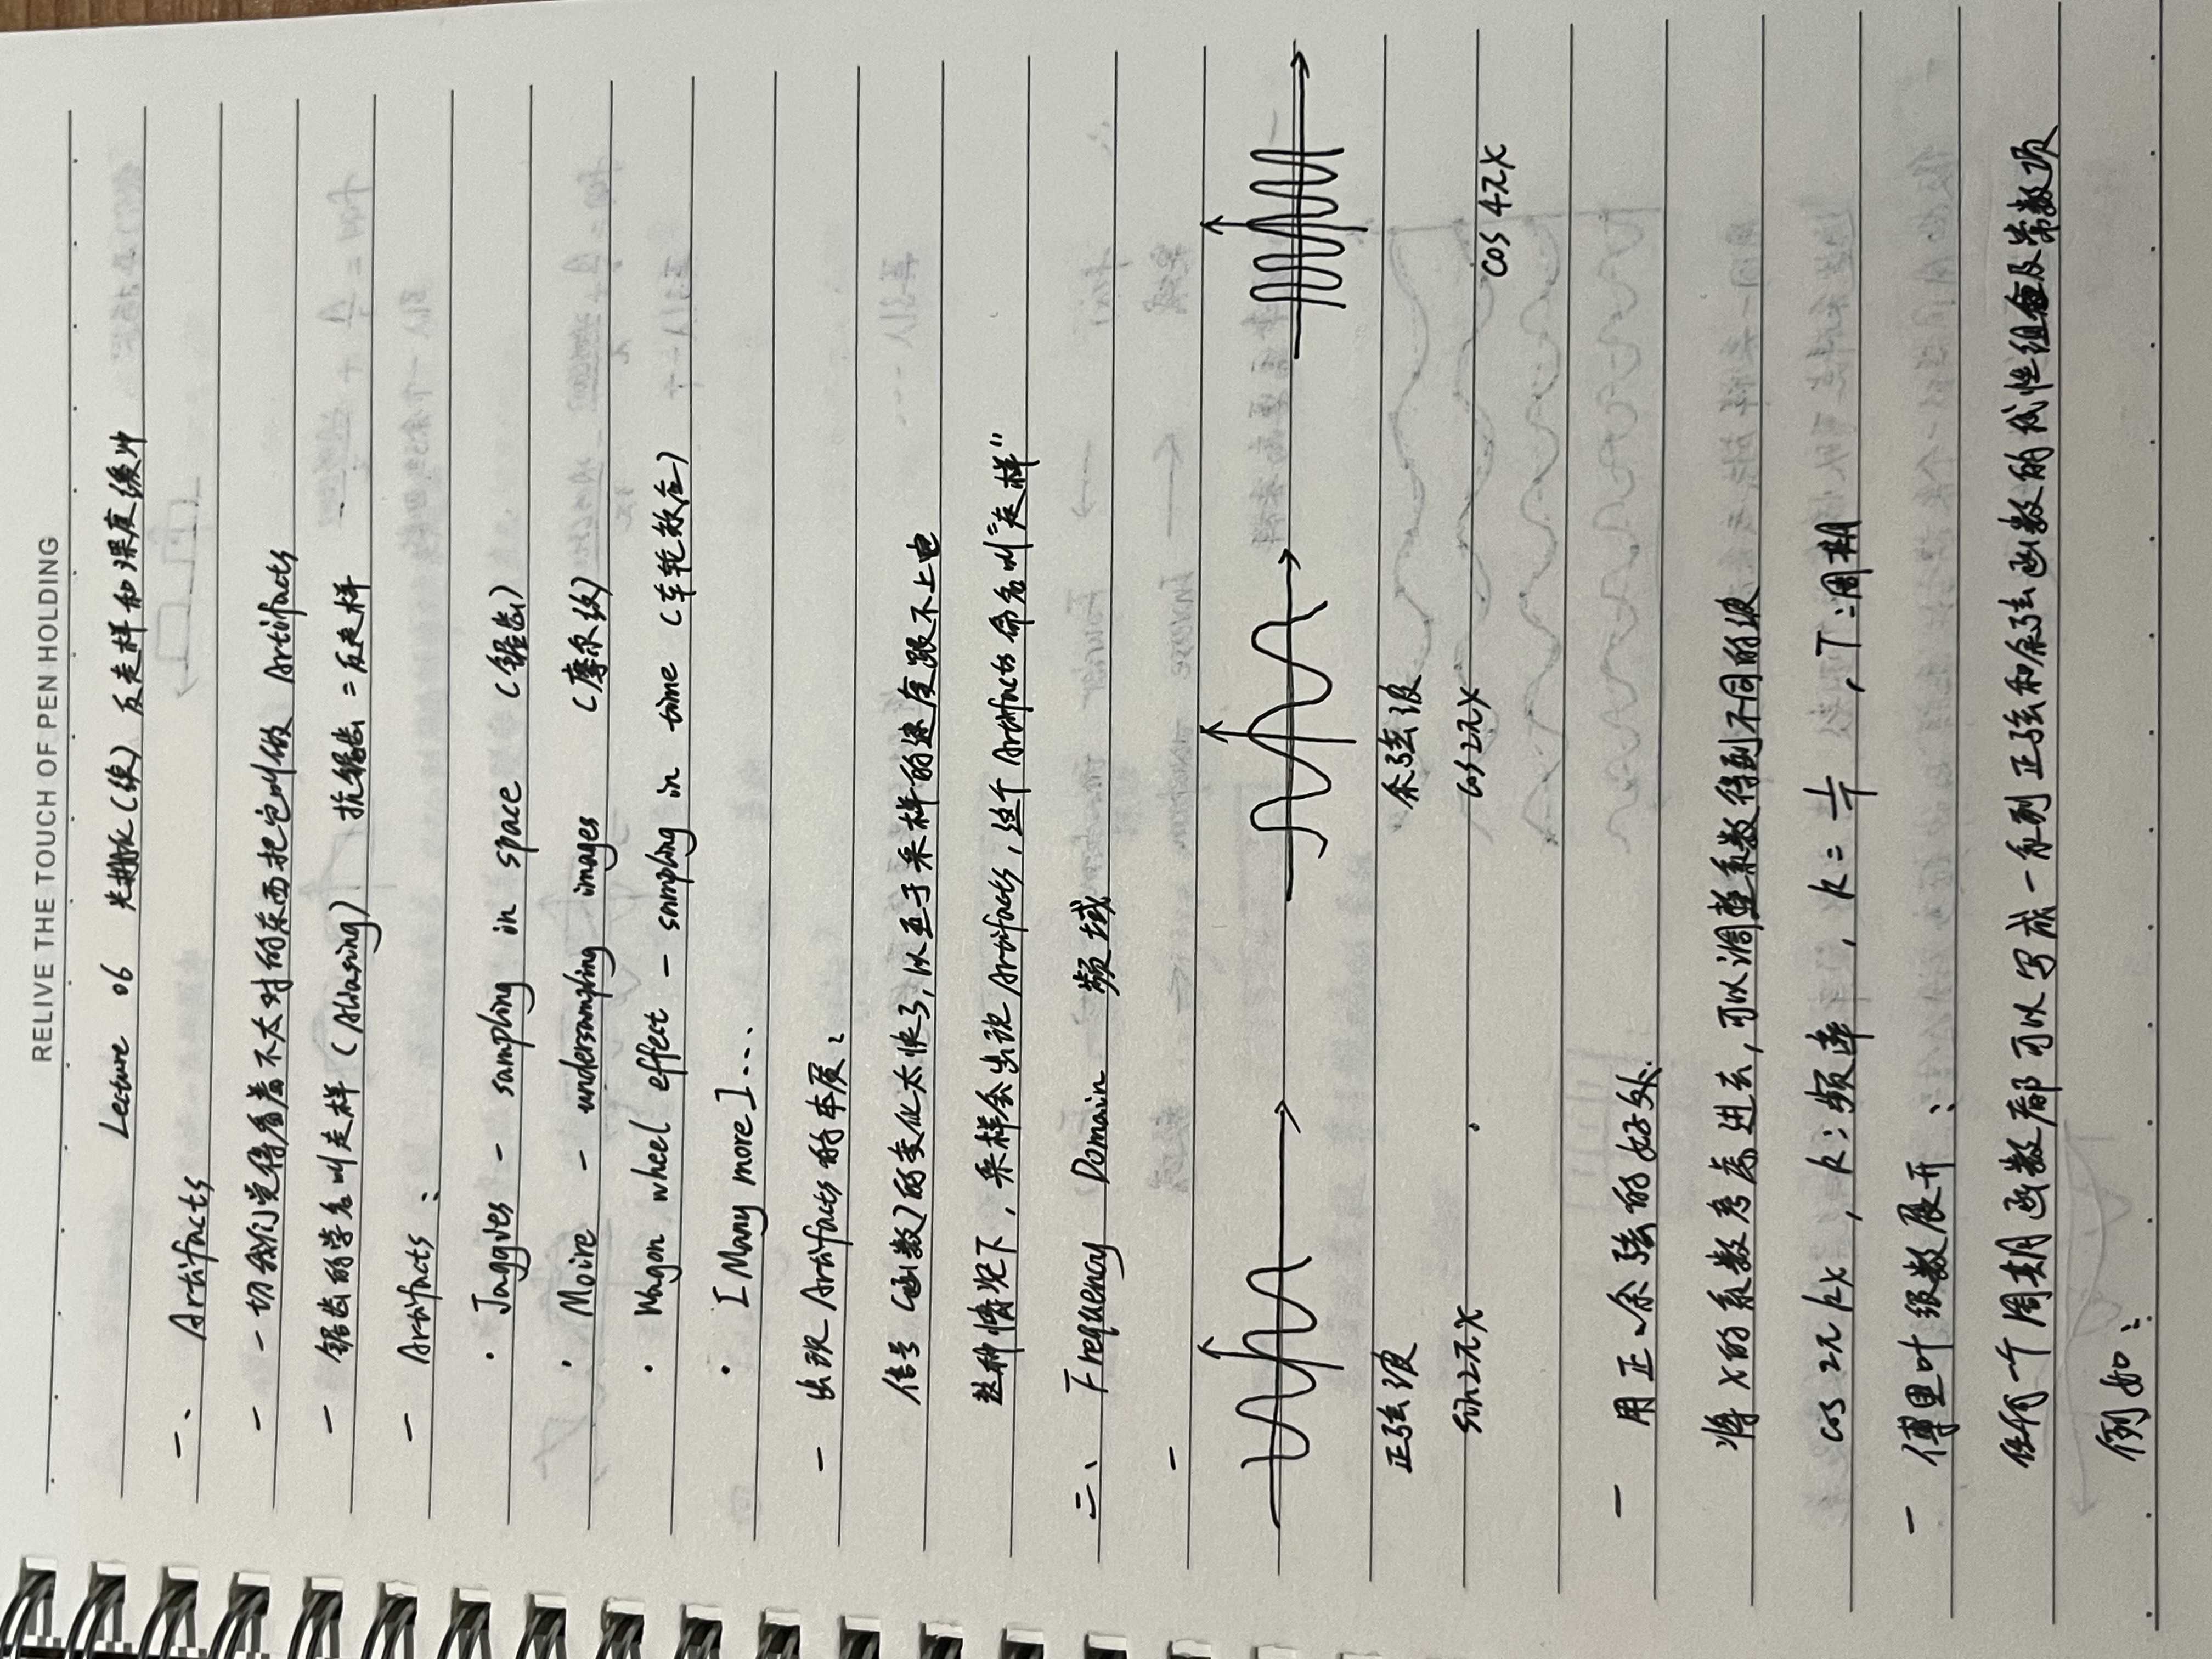 RELIVE THE TOUCH OF PEN HOLDING
Lecture 06 光栅化(续) 反走样和深度缓冲
一、Artifacts
- 一切我们觉得看着不太对的东西把它叫做 Artifacts
- 锯齿的学名叫走样 (Aliasing) 抗锯齿 = 反走样
- Artifacts:
· Jaggies - sampling in space (锯齿)
· Moire - undersampling images (摩尔纹)
· Wagon wheel effect - sampling in time (车轮效应)
· [Many more]....
- 出现 Artifacts 的本质:
信号(函数)的变化太快了,以至于采样的速度跟不上它
这种情况下,采样会出现 Artifacts,这个 Artifacts 命名叫"走样"
二、Frequency Domain 频域
-
正弦波 余弦波
sin2πx cos2πx cos 4πx
- 用正、余弦的好处:
将X的系数考虑进去,可以调整系数得到不同的波
cos 2π kx , k:频率 , k = 1/T , T:周期
- 傅里叶级数展开:
任何一个周期函数都可以写成一系列正弦和余弦函数的线性组合及常数项
例如: